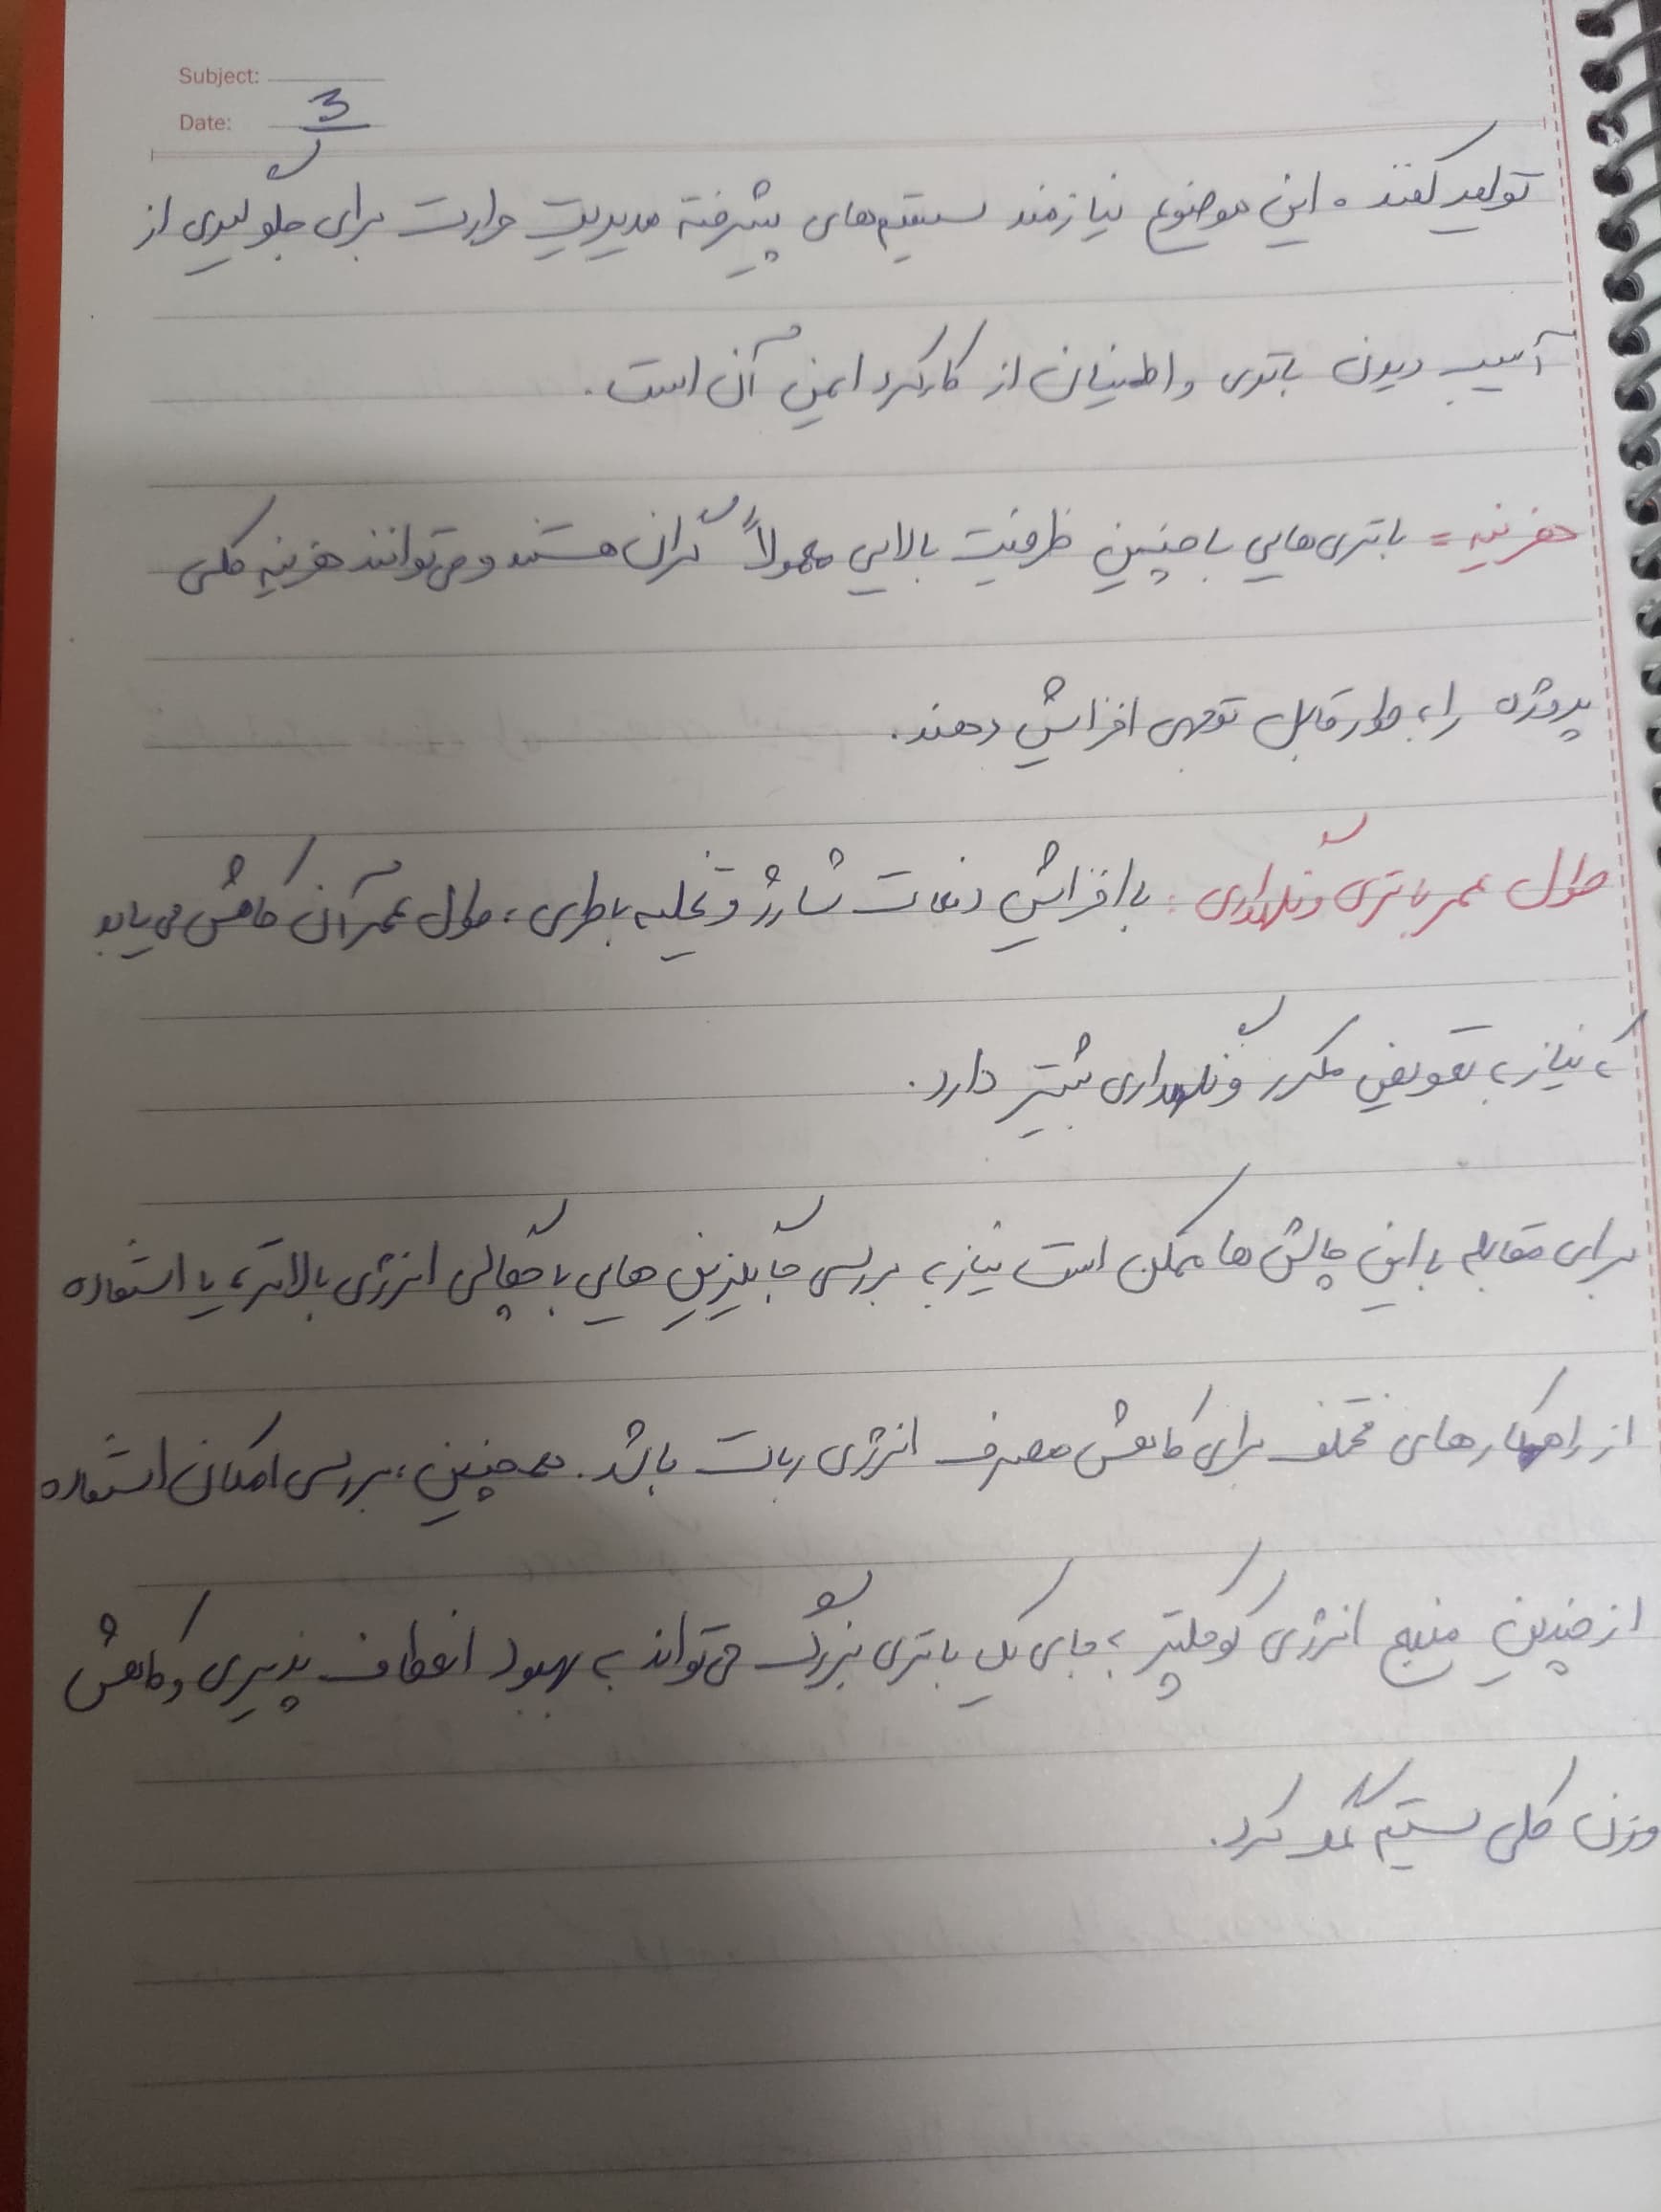 Subject:
Date: 3
تولید کنند. این موضوع نیازمند سیستم‌های پیشرفته مدیریت حرارت برای جلوگیری از
آسیب دیدن باتری و اطمینان از کارکرد ایمن آن است.
هزینه = باتری‌هایی با چنین ظرفیت بالایی معمولاً گران هستند و می‌توانند هزینه کلی
پروژه را به طور قابل توجهی افزایش دهند.
طول عمر باتری و نگهداری: با افزایش دفعات شارژ و تخلیه باطری، طول عمر آن کاهش می‌یابد
که نیاز به تعویض مکرر و نگهداری بیشتر دارد.
برای مقابله با این چالش ها ممکن است نیاز به بررسی جایگزین هایی با چگالی انرژی بالاتر، یا استفاده
از راهکارهای مختلف برای کاهش مصرف انرژی ربات باشد. همچنین، بررسی امکان استفاده
از چندین منبع انرژی کوچکتر به جای یک باتری بزرگ می‌تواند به بهبود انعطاف پذیری و کاهش
وزن کلی سیستم کمک کرد.